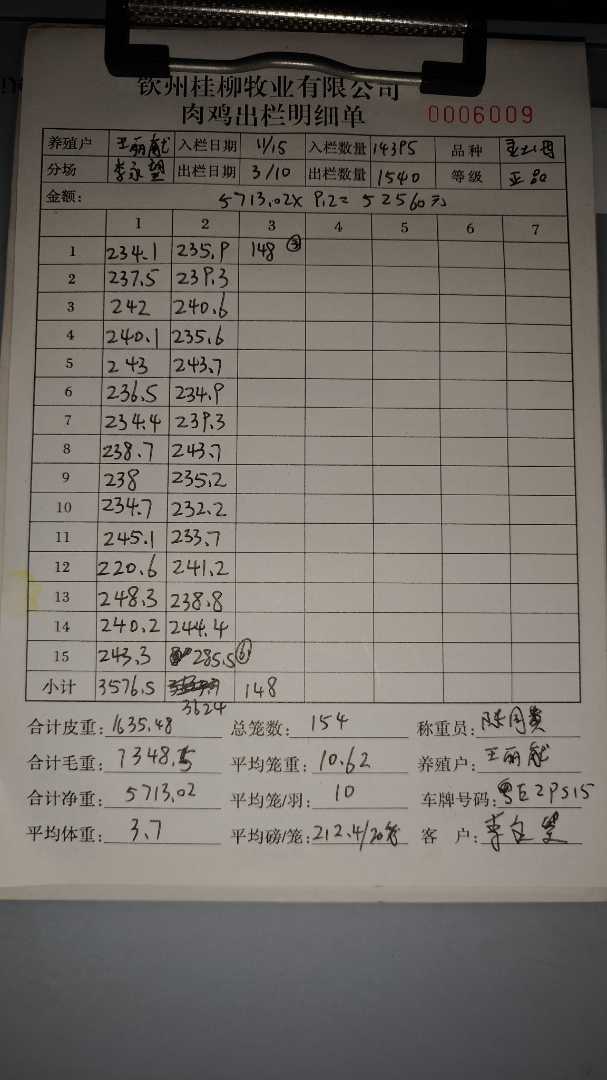 钦州桂柳牧业有限公司
肉鸡出栏明细单 0006009
养殖户 王丽献 入栏日期 11/15 入栏数量 14395 品种
分场 李永望 出栏日期 3/10 出栏数量 1540 等级 正品
金额: 5713.02X 9.2= 52560元
1 2 3 4 5 6 7
1 234.1 235.9 148 ③
2 237.5 239.3
3 242 240.6
4 240.1 235.6
5 243 243.7
6 236.5 234.9
7 234.4 239.3
8 238.7 243.7
9 238 235.2
10 234.7 232.2
11 245.1 233.7
12 220.6 241.2
13 248.3 238.8
14 240.2 244.4
15 243.3 285.5 ⑥
小计 3576.5 3624 148
合计皮重: 1635.48 总笼数: 154 称重员:
合计毛重: 7348.5 平均笼重: 10.62 养殖户: 王丽献
合计净重: 5713.02 平均笼/羽: 10 车牌号码: 粤E2P515
平均体重: 3.7 平均磅/笼: 212.4/20 客户: